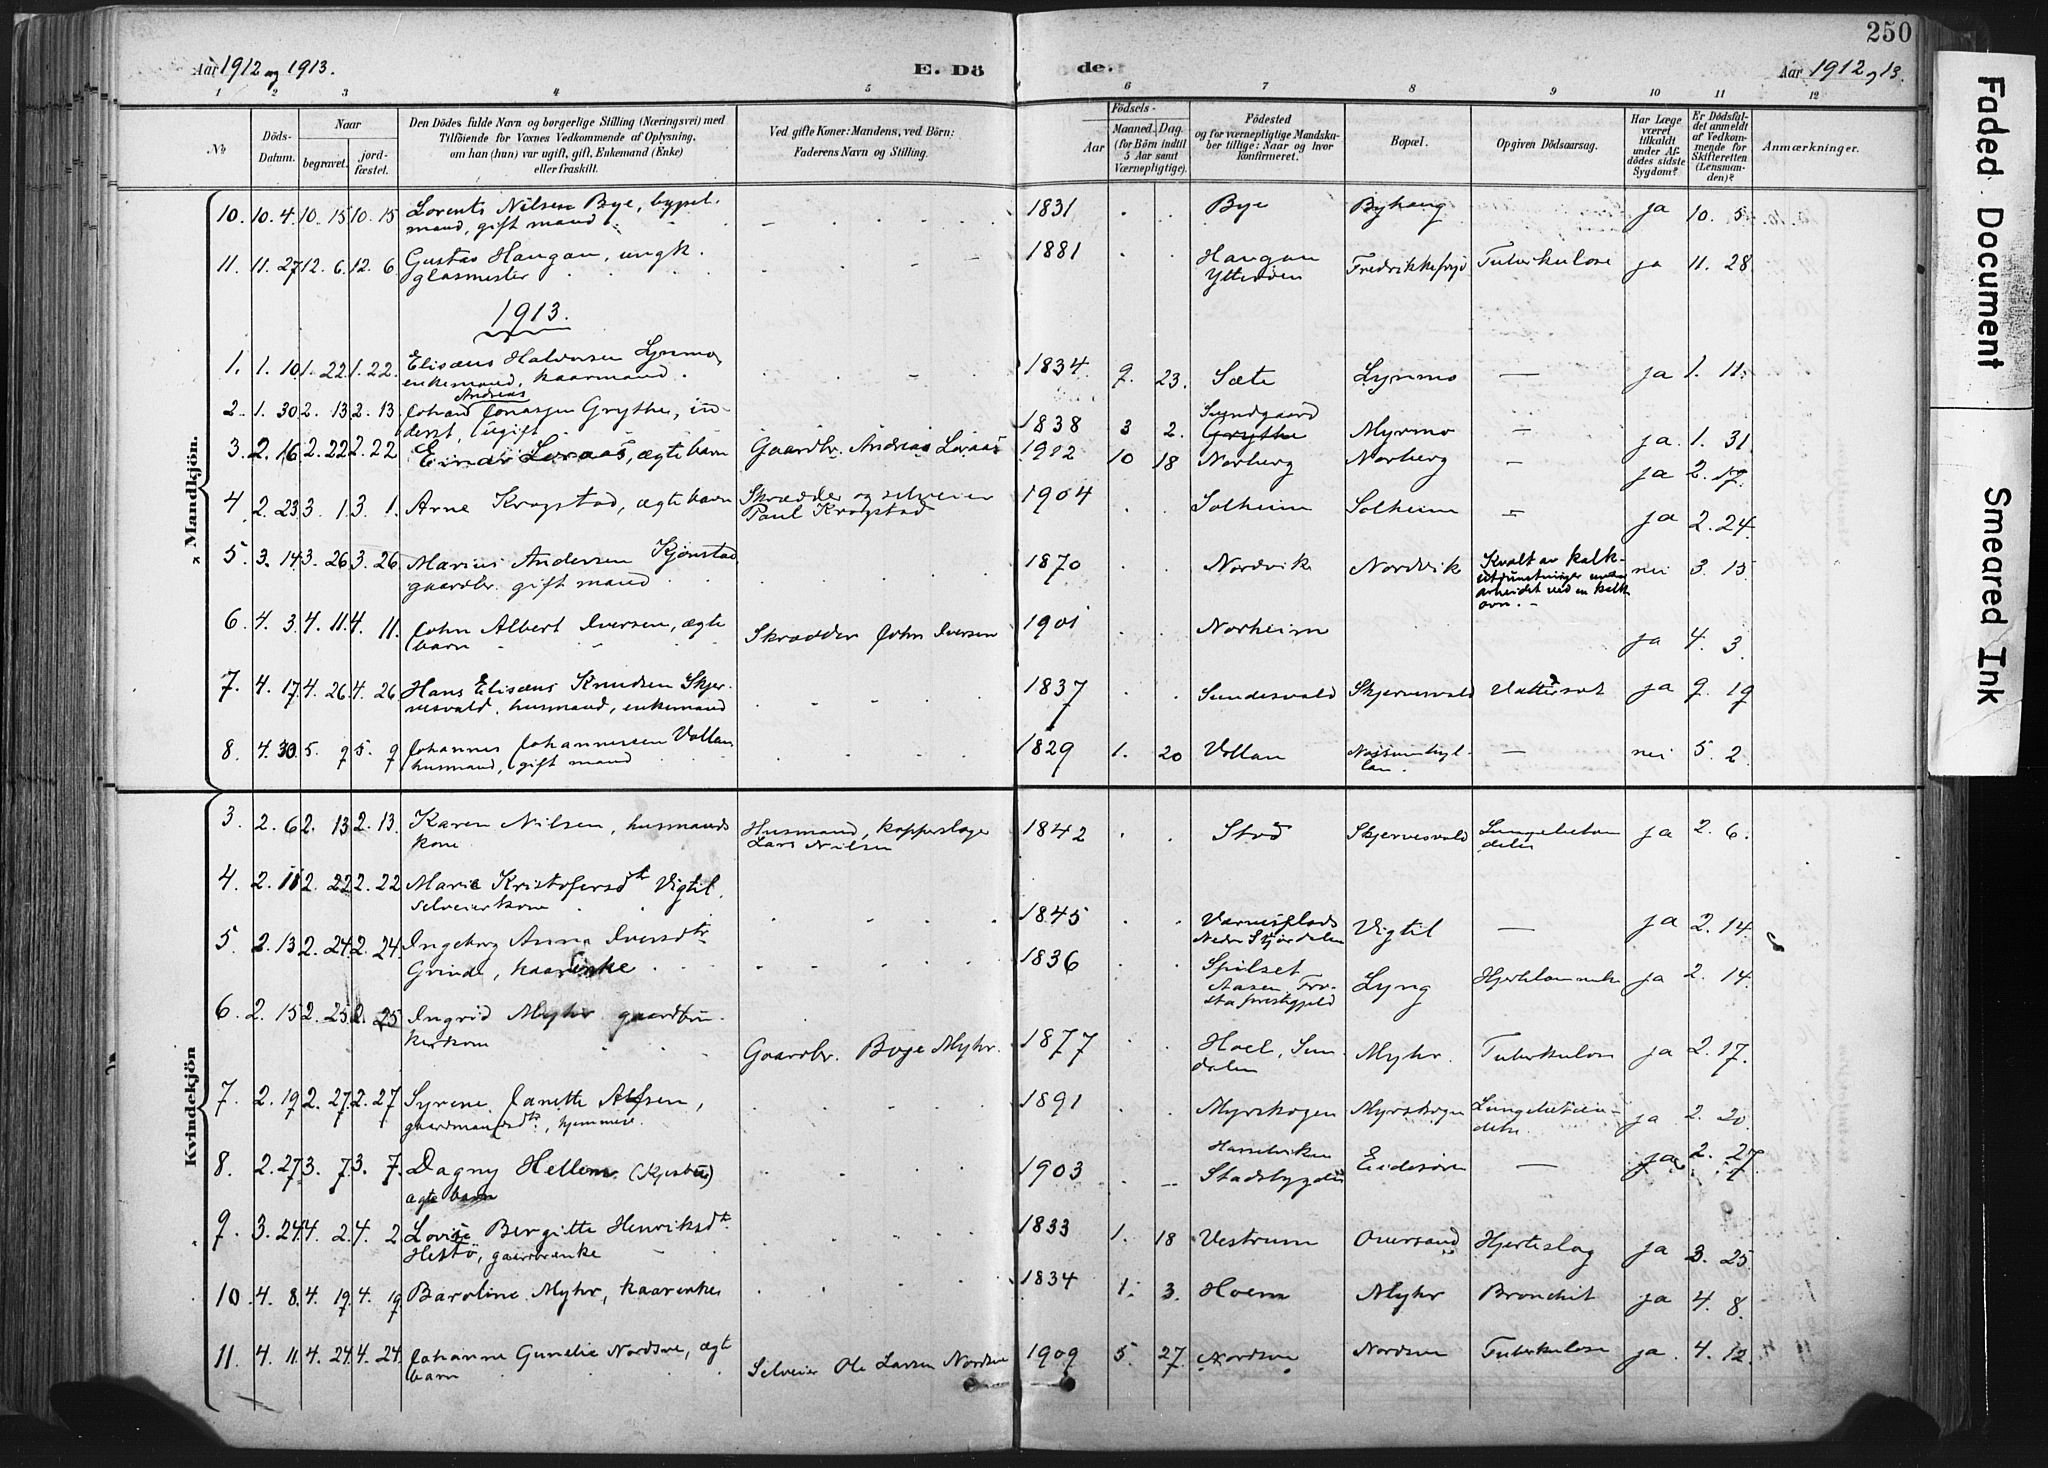 250
Aar 1912 og 1913.
E. Dö de.
Aar 1912 og 13.
1 2 3 4 5 6 7 8 9 10 11 12
No
Döds-Datum.
Naar
begravet.
jord-fæstet.
Den Dödes fulde Navn og borgerlige Stilling (Næringsvei) med
Tilföiende for Voxnes Vedkommende af Oplysning,
om han (hun) var ugift, gift, Enkemand (Enke)
eller fraskilt.
Ved gifte Koner: Mandens, ved Börn:
Faderens Navn og Stilling.
Födsels-
Aar
Maaned. Dag.
(for Börn indtil
5 Aar samt
Værnepligtige).
Födested
og for værnepligtige Mandska-
ber tillige: Naar og hvor
konfirmeret.
Bopæl.
Opgiven Dödsaarsag.
Har Læge
været
tilkaldt
under Af-
dödes sidste
Sygdom?
Er Dödsfal-
det anmeldt
af Vedkom-
mende for
Skifteretten
(Lensman-
den)?
Anmærkninger.
Mandkjön.
10. 10. 4. 10. 15 10. 15 Lorents Nilsen Bye, bygsel-
mand, gift mand. 1831 Bye Byhaug ja 10. 5.
11. 11. 27 12. 6. 12. 6. Gustav Haugan, ungk.
glasmester 1881 Haugan
Ytterøen Fredrikkefryd Tuberkulose ja 11. 28.
1913.
1. 1. 10 1. 22 1. 22. Elisæus Halvorsen Lynmo,
enkemand, kaarmand. 1834 9. 23. Sæte Lynmo — ja 1. 11.
2. 1. 30 2. 13 2. 13. Johan Andreas Jonassen Grythe, in-
derst, ugift 1838 3 2. Sundgaard
Grythe Myrmo — ja 1. 31.
3. 2. 16 2. 22 2. 22 Einar Loraas, ægte barn Gaardbr. Andreas Loraas 1902 10 18 Norberg Norberg — ja 2. 17.
4 2. 23 3. 1. 3. 1. Arne Krogstad, ægte barn Skrædder og selveier
Paul Krogstad 1904 Solheim Solheim — ja 2. 24.
5. 3. 14 3. 26 3. 26 Marius Andersen Kjønstad
gaardbr. gift mand 1870 Nordvik Nordvik Kvalt av kalk-
utdunstninger under
arbeidet ved en kalk
ovn. nei 3. 15
6. 4. 3. 4. 11. 4. 11. John Albert Iversen, ægte
barn Skrædder John Iversen 1901 Norheim ja 4. 3.
7. 4. 17. 4. 26 4. 26 Hans Elisæus Knudsen Skjer-
vesvald, husmand, enkemand 1837 Sundesvald Skjervesvald Vattersot ja 9. 19
8. 4. 30. 5. 9 5. 9 Johannes Johannessen Vollan
husmand, gift mand 1829 1. 20 Vollan — nei 5. 2.
Kvindekjön
3. 2. 6 2. 13 2. 13. Karen Nilsen, husmands
kone Husmand, kopperslager
Lars Nilsen 1842 Stod Skjervesvald Lungebetæn
delse ja 2. 6.
4. 2. 11 2. 22 2. 22 Marie Kristofersdtr Vigtil,
selveierkone 1845 Værnesplads
Nedre Stjørdalen Vigtil — ja 2. 14.
5 2. 13 2. 24 2. 24. Ingeborg Anna Iversdtr
Grinde, kaarenke 1836 Spilset
Aasen, Fro-
sta prestegjeld Lyng Hjertelammelse ja 2. 14.
6. 2. 15 2. 25 2. 25 Ingrid Myhr gaardbru-
kerkone Gaardbr. Boje Myhr. 1877 Hoel, Sun-
dalen Myhr. Tuberkulose ja 2. 17.
7. 2. 19 2. 27 2. 27 Syrene Janette Alfsen,
gaardmandsdtr, hjemmev. 1891 Myrskogen Myrskogen Lungebetæn-
delse ja 2. 20.
8. 2. 27 3. 7 3. 7. Dagny Hellem
ægte barn 1903 Hasselviken
Stadsbygden — ja 2. 27.
9. 3. 24 4. 2 4. 2 Lovise Bergitte Henriksdtr
Hestø, gaardbr.enke 1833 1. 18 Vestrum Oversand Hjerteslag ja 3. 25.
10. 4. 8. 4. 19 4. 19 Baroline Myhr, kaarenke 1834 1. 3. Hoem Myhr Bronchit ja 4. 8.
11 4. 11. 4. 24. 4. 24. Johanne Gunelie Nordsve, ægte
barn Selveier Ole Larsen Nordsve 1909 5. 27. Nordsve Nordsve Tuberkulose ja. 4. 12.
Faded Document
Smeared Ink